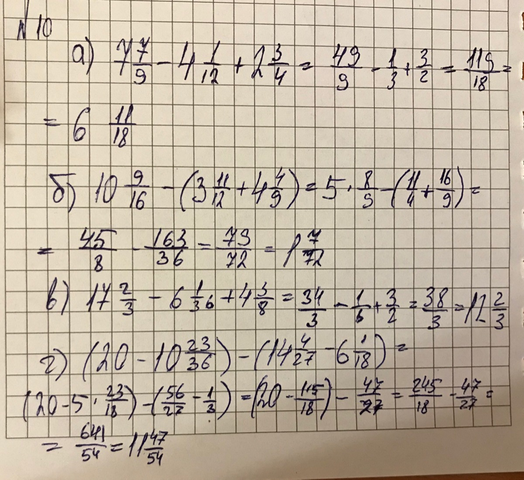 № 10
а) 7 7/9 - 4 1/12 + 2 3/4 = 49/9 - 1/3 + 3/2 = 119/18 =
= 6 11/18
б) 10 9/16 - (3 11/12 + 4 4/9) = 5 · 8/9 - (11/4 + 16/9) =
= 45/8 - 163/36 = 79/72 = 1 7/72
в) 17 2/3 - 6 1/36 + 4 3/8 = 34/3 - 1/6 + 3/2 = 38/3 = 12 2/3
г) (20 - 10 23/36) - (14 4/27 - 6 1/18) =
(20 - 5 · 23/18) - (56/27 - 1/3) = (20 - 115/18) - 47/27 = 245/18 - 47/27 =
= 641/54 = 11 47/54